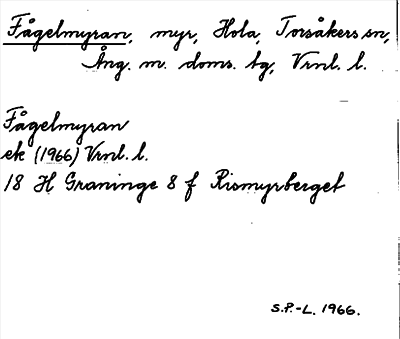 Fågelmyran, myr, Hola, Torsåkers sn,
Ång. m. doms. bg, Vrnl. l.
Fågelmyran
ek (1966) Vrnl. l.
18 H Graninge 8 f Rismyrberget
S.P.-L. 1966.